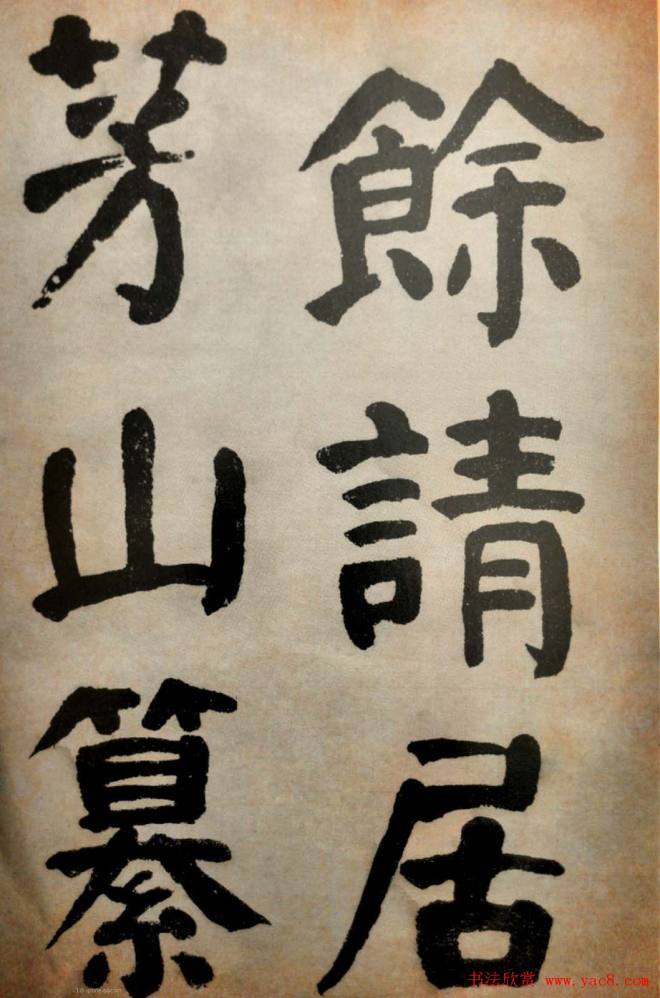 餘請居
茅山纂
书法欣赏 www.yac8.com